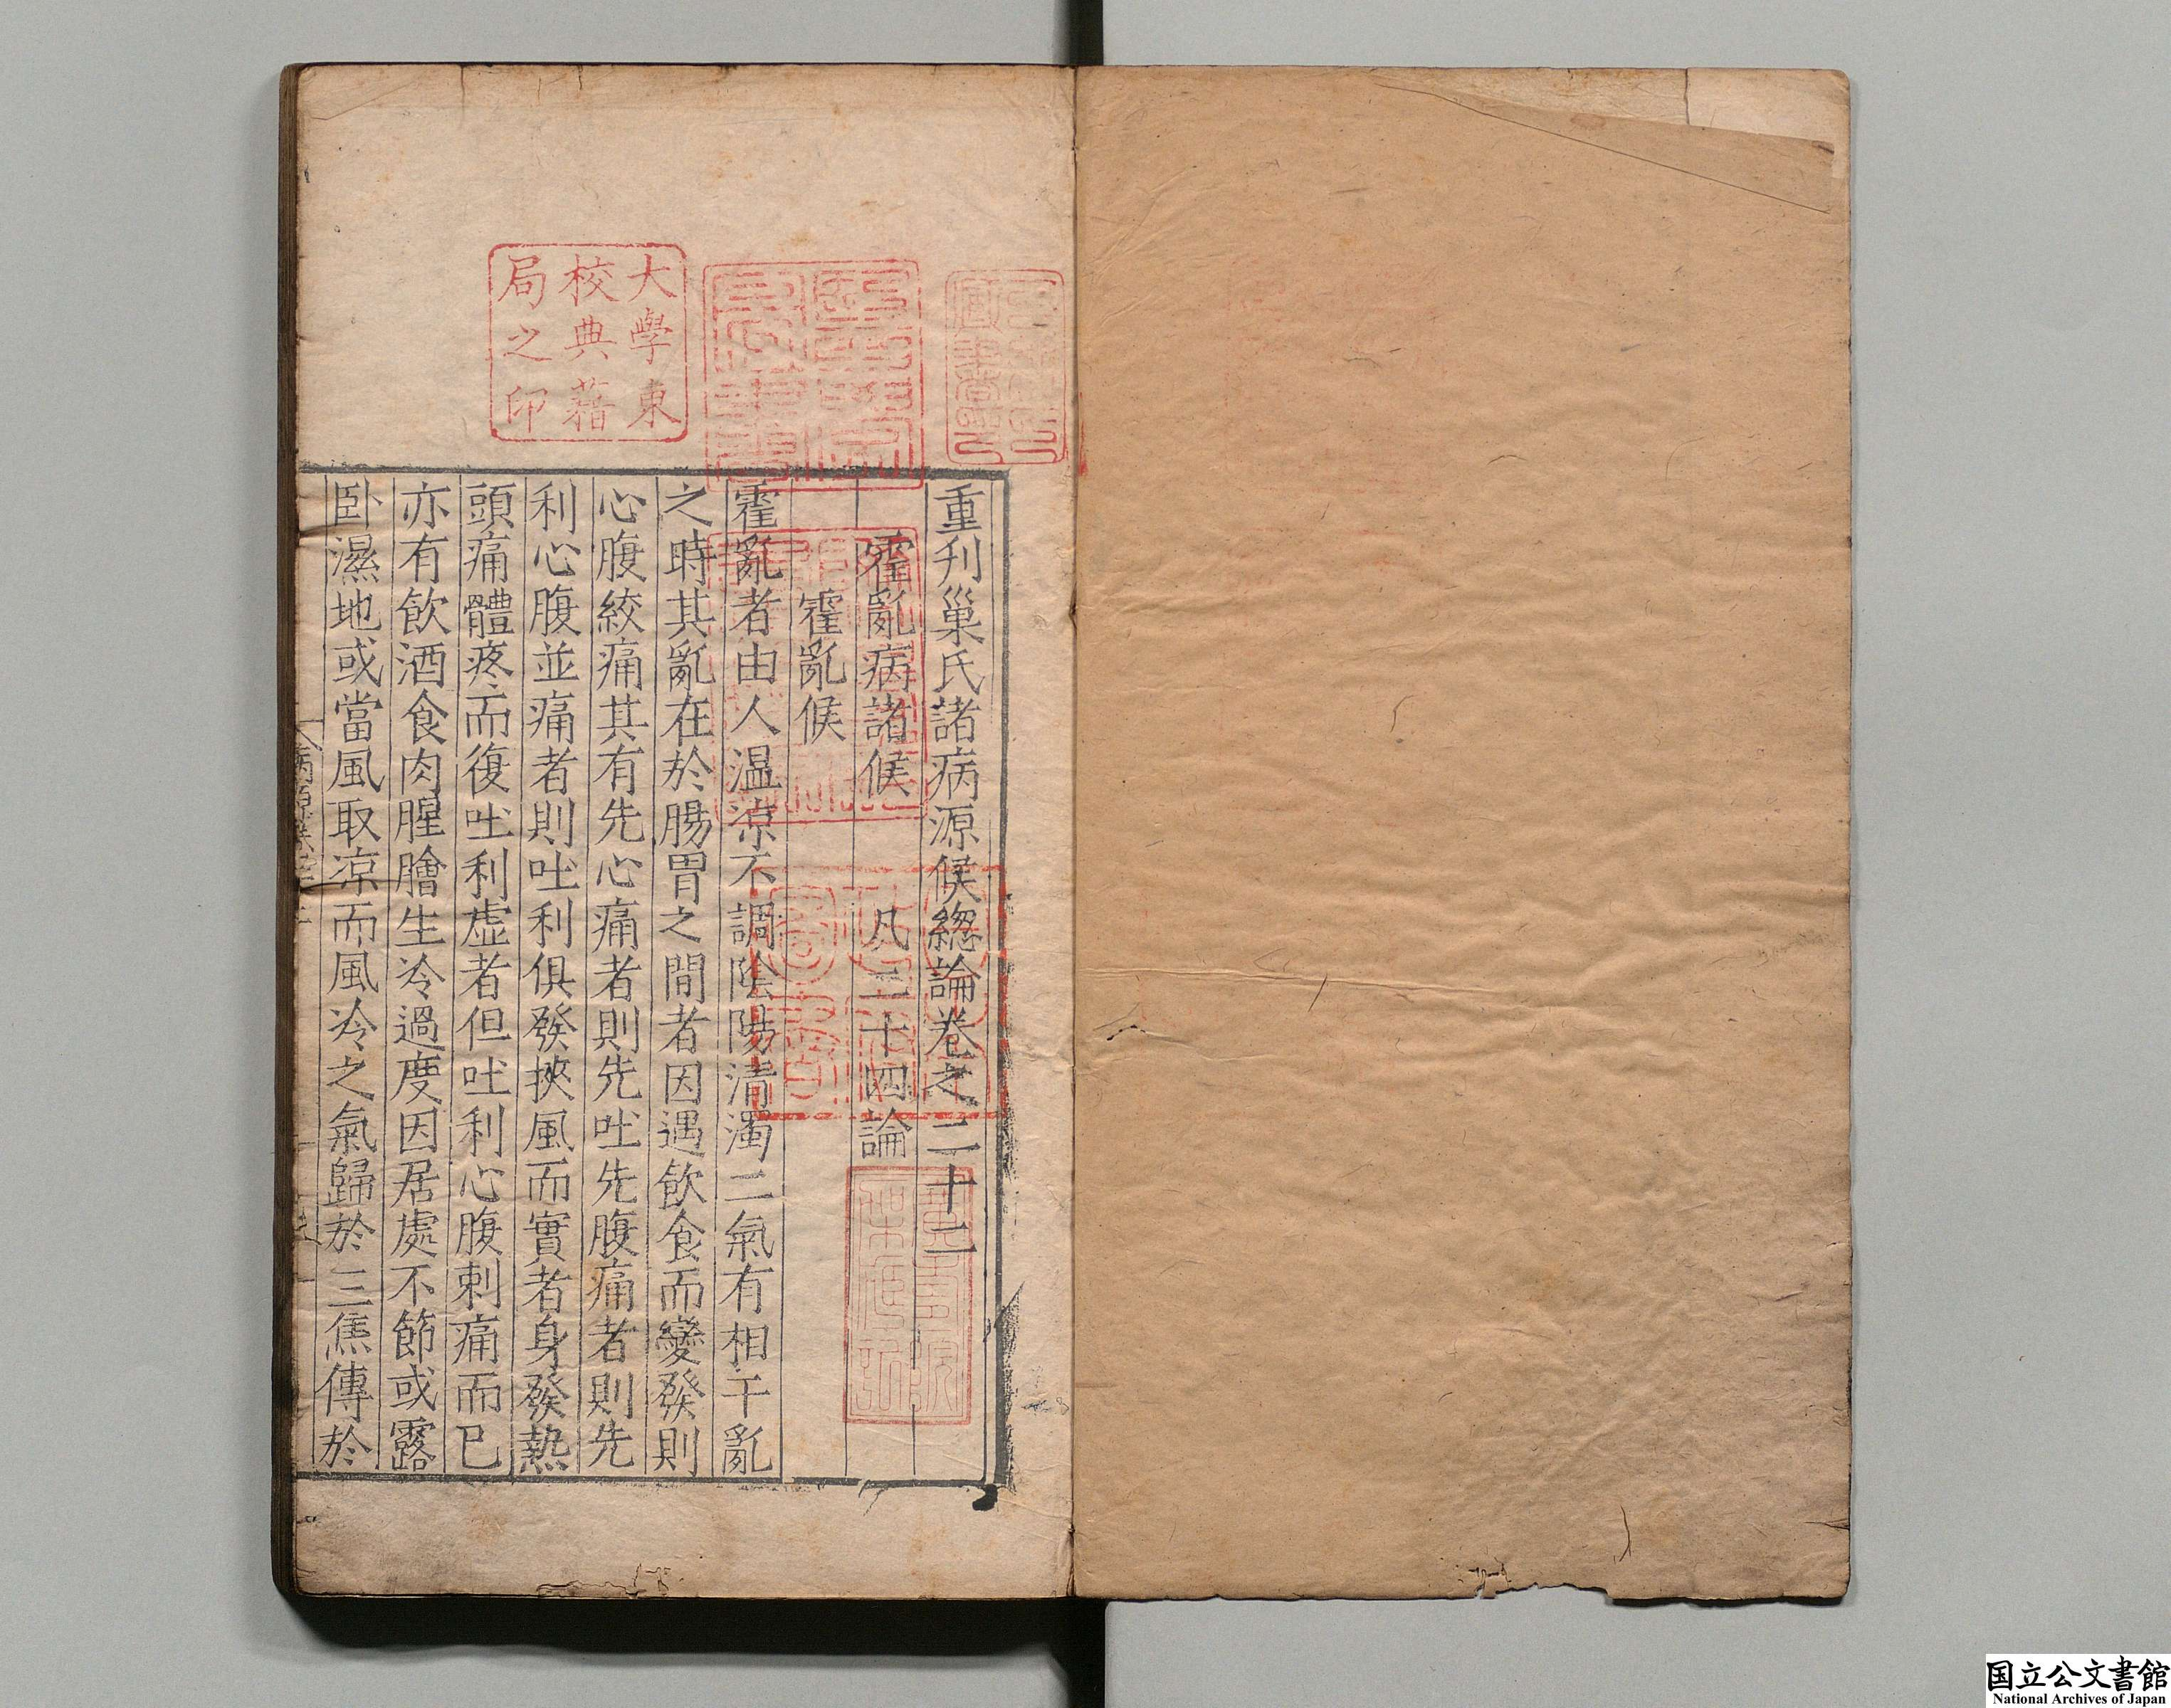 重刋巢氏諸病源候緫論卷之二十二
霍亂病諸候　凡二十四論
霍亂候
霍亂者由人温凉不調陰陽清濁二氣有相干亂
之時其亂在於腸胃之間者因遇飲食而變發則
心腹絞痛其有先心痛者則先吐先腹痛者則先
利心腹並痛者則吐利俱發挾風而實者身發熱
頭痛體疼而復吐利虚者但吐利心腹刺痛而已
亦有飲酒食肉腥膾生冷過度因居處不節或露
卧濕地或當風取凉而風冷之氣歸於三焦傳於
大學東
校典藉
局之印
国立公文書館
National Archives of Japan